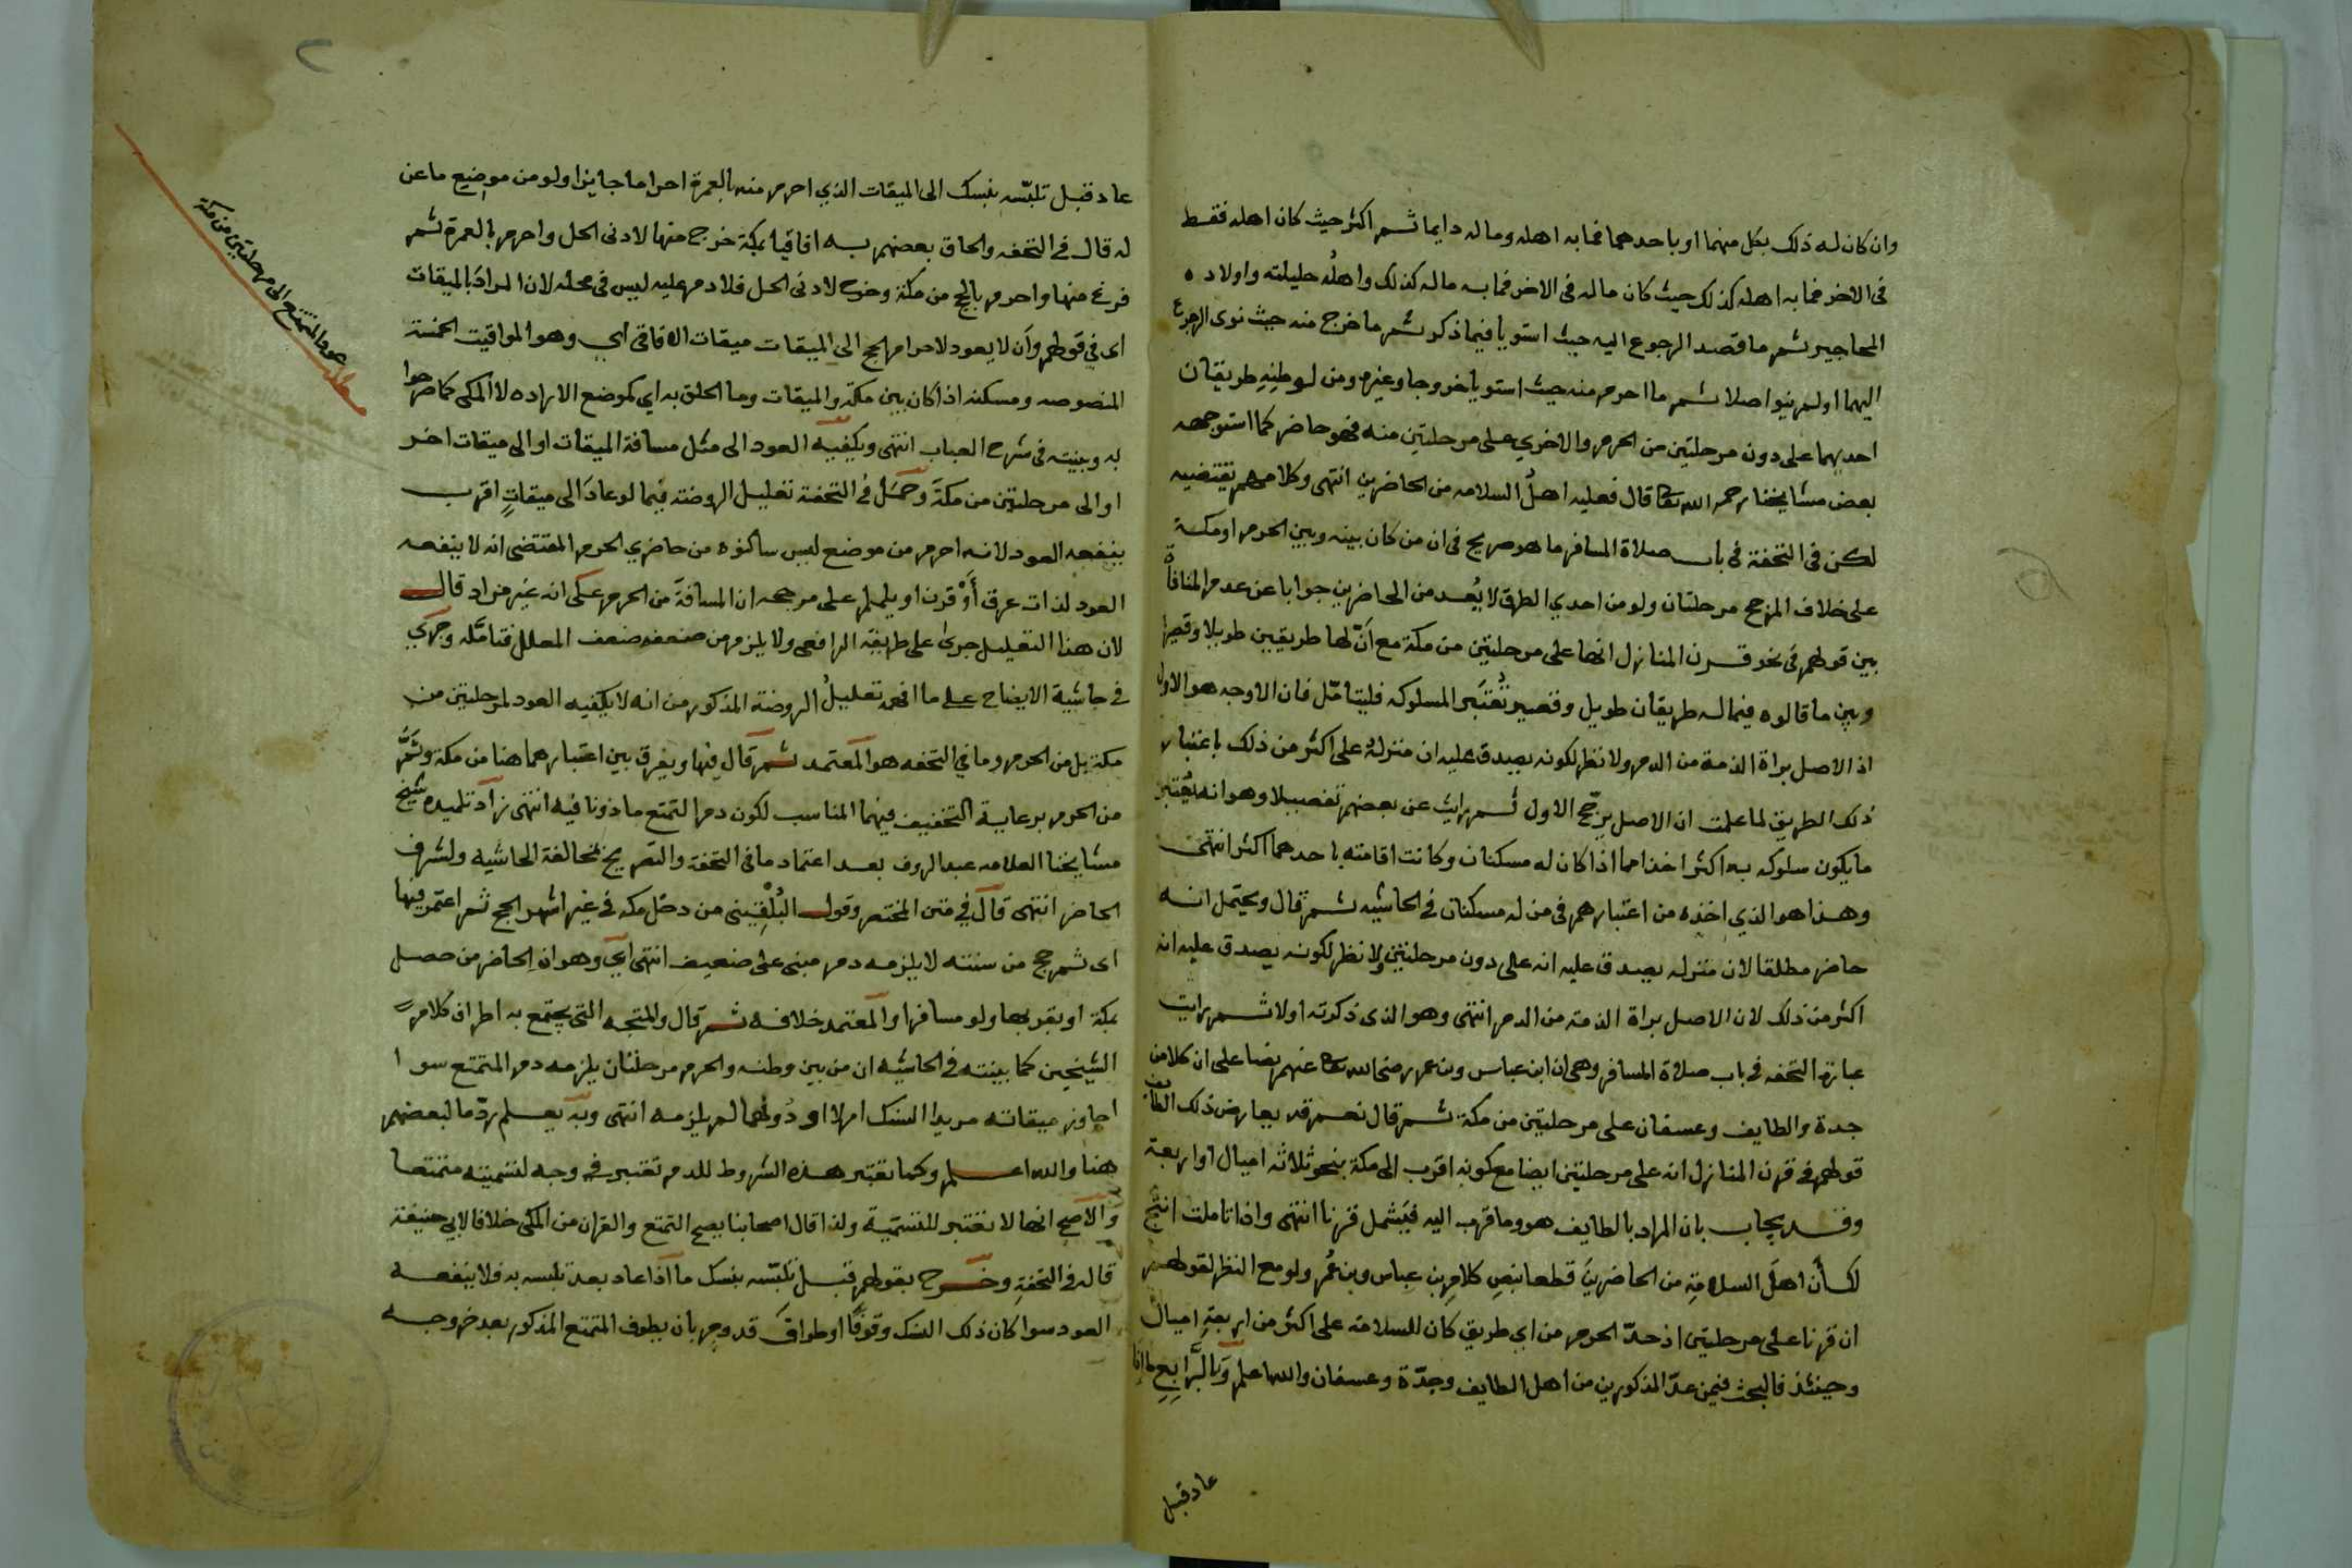 وان كان له ذلك بكل منهما او باحدهما فما به اهله وماله دايما ثم اكثر حيث كان اهله فقط
في الاخر فما به اهله كذلك حيث كان ماله في الاخر فما به ماله كذلك واهلُه حليلته واولاده
المحاجير ثم ما قصد الرجوع اليه حيث استويا فيما ذكر ثم ما خرج منه حيث نوى الرجوع
اليهما او لم ينو اصلا ثم ما احرم منه حيث استويا خروجا وغيره ومن لوطنِهِ طريقان
احديهما على دون مرحلتين من الحرم والاخري على مرحلتين منه فهو حاضر كما استوجهه
بعض مشايخنا رحمه الله تعا قال فعليه اهلُ السلامه من الحاضرين انتهى وكلامهم يقتضيه
لكن في التحفة في باب صلاة المسافر ما هو صريح في ان من كان بينه وبين الحرم او مكة
على خلاف المرجح مرحلتان ولو من احدي الطرق لا يُعد من الحاضرين جوابا عن عدم المنافاة
بين قولهم في نحو قرن المنازل انها على مرحلتين من مكة مع اَنّ لها طريقين طويلا وقصيرا
وبين ما قالوه فيما له طريقان طويل وقصير تُعْتَبر المسلوكه فليتامّل فان الاوجه هو الاول
اذ الاصل براة الذمة من الدم ولا نظر لكونه يصدق عليه ان منزلهُ على اكثر من ذلك باعتبار
ذلك الطريق لما علمت ان الاصل يرجّح الاول ثم رايت عن بعضهم تفصيلا وهو انه يُعْتبر
ما يكون سلوكه به اكثر اخذا مما اذا كان له مسكنان وكانت اقامته باحدهما اكثر انتهى
وهذا هو الذي اخذه من اعتبارهم في من له مسكنان في الحاشيه ثم قال ويحتمل انه
حاضر مطلقا لان منزله يصدق عليه انه على دون مرحلتين ولا نظر لكونه يصدق عليه انه
اكثر من ذلك لان الاصل براة الذمة من الدم انتهى وهو الذى ذكرته اولا ثم رايت
عبارة التحفه في باب صلاة المسافر وهي ان ابن عباس وبن عمر رضي الله تعا عنهم نصا على ان كلا من
جدة والطايف وعسفان على مرحلتين من مكة ثم قال نعم قد يعارض ذلك الطايف
قولهم في قرن المنازل انه على مرحلتين ايضا مع كونه اقرب الى مكة بنحو ثلاثه اميال او اربعة
وقد يجاب بان المراد بالطايف هو وما قرب اليه فيَشمل قرنا انتهى واذا تاملت انتج
لك اَن اهلَ السلامةِ من الحاضرينَ قطعا بنصِ كلامِ بن عباس وبن عُمر ولو مع النظر لقولهم
ان قرنا على مرحلتين اذ حدّ الحرم من اي طريق كان للسلامة على اكثر من اربعةِ اميال
وحينئذ فالبحث فيمن عدّ المذكورين من اهل الطايف وجدّة وعسفان والله اعلم وَبالرَّابِعِ ما اذا
عاد قبل
عاد قبل تلبّسه بنسك الى الميقات الذي احرم منه بالعمرة احراما جايزا ولو من موضع ما عن
له قال في التحفه والحاق بعضهم به افاقيا بمكة خرج منها لادنى الحل واحرم بالعمرة ثم
فرغ منها واحرم بالحج من مكة وخرج لادنى الحل فلا دم عليه ليس في محله لان المرادَ بالميقات
اى في قولهم وأن لا يعود لاحرام الحج الى الميقات ميقات الافاقي اي وهو المواقيت الخمسة
المنصوصه ومسكنه اذا كان بين مكة والميقات وما الحق به اي كموضع الاراده لا المكي كما صرحوا
به وبينته في شرح العباب انتهى ويكفيه العود الى مثل مسافة الميقات او الى ميقات اخر
او الى مرحلتين من مكةَ وحَمَلَ في التحفة تعليل الروضة فيما لو عادَ الى ميقاتٍ اقرب
ينفعه العود لانه احرم من موضع ليس ساكنوه من حاضري الحرم المقتضى انه لا ينفعه
العود لذات عرق أَوْ قرن او يلملم على مرجحه ان المسافةَ من الحرم عَلى انه غير مراد قال
لان هذا التعليل جرى على طريقة الرافعى ولا يلزم من ضعفه ضعف المعلل فتامّله وجرَي
في حاشية الايضاح على ما افهمه تعليلُ الروضة المذكور من انه لا يكفيه العود لمرحلتين من
مكة بل من الحرم وما في التحفه هو المعتمد ثم قال فيها ويفرق بين اعتبارهما هنا من مكة وثَمَّ
من الحرم برعاية التخفيف فيهما المناسب لكون دم التمتع ماذونا فيه انتهى زاد تلميده شيخ
مشايخنا العلامه عبد الروف بعد اعتماد ما في التحفة والتصريح بمخالفة الحاشيه ولشرف
الحاضر انتهى قال في متن المختصر وقول البُلْقِيني من دخل مكه في غير اشهر الحج ثم اعتمر فيها
اى ثم حج من سنته لا يلزمه دم مبنى على ضعيف انتهى اي وهو ان الحاضر من حصل
بمكة او بقربها ولو مسافرا والمعتمد خلافه ثم قال والمتجه التي يجتمع به اطراف كلام
الشيخين كما بينته في الحاشيه ان من بين وطنه والحرم مرحلتان يلزمه دم المتمتع سوا
اجاوز ميقاته مريدا النسك ام لا او دُونهما لم يلزمه انتهى وبه يعلم ردّ ما لبعضهم
هنا والله اعلم وكما تعتبر هذه الشروط للدم تعتبر في وجه لتسميته متمتعا
والاصح انها لا تعتبر للتسميّة ولذا قال اصحابنا يصح التمتع والقران من المكى خلافا لابي حنيفة
قاله في التحفةِ وخَرج بقولهم قبل تلبّسه بنسك ما اذا عاد بعد تلبسه به فلا ينفعه
العود سوا كان ذلك النسك وقوفًا او طوافَ قدوم بان يطوف المتمتع المذكور بعد خروجه
مطلب عود المتمتع الى مرحلتين من مكة